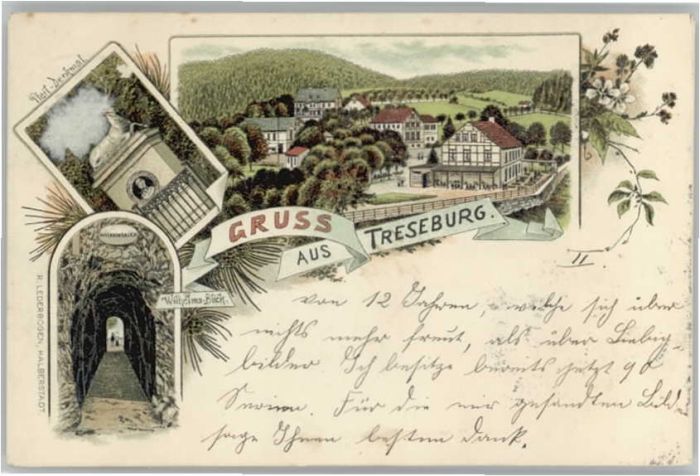 Pfeil-Denkmal.
GRUSS
AUS
TRESEBURG.
WILHELMSBLICK
Wilhelms-Blick.
R. LEDERBOGEN, HALBERSTADT
II
von 12 Jahren, welche sich über
nichts mehr freut, als über Liebig-
bilder Ich besitze bereits jetzt 90
Serien. Für die mir gesandten Bild
sage Ihnen besten Dank.